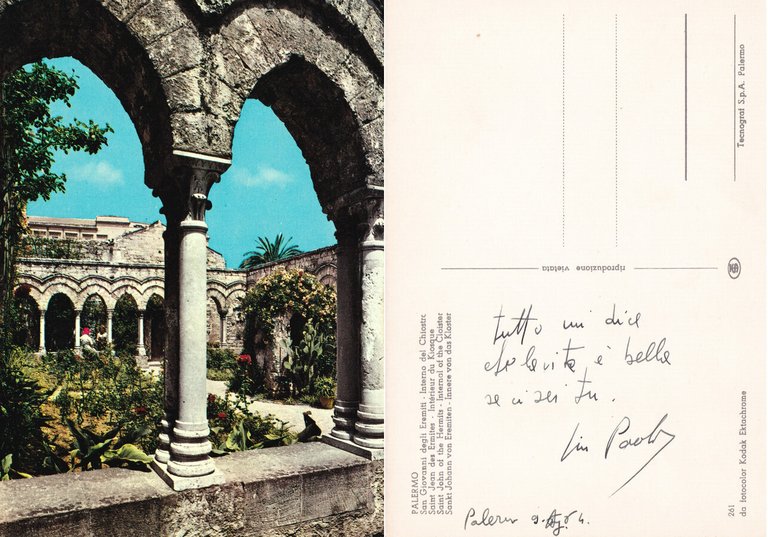 PALERMO
San Giovanni degli Eremiti - Interno del Chiostro
Saint Jean des Ermites - Intérieur du Kiosque
Saint John of the Hermits - Internal of the Cloister
Sankt Johann von Eremiten - Innere von das Kloster
Tecnograf S.p.A. Palermo
riproduzione vietata
tutto mi dice
che la vita è bella
se ci sei tu.
Paolo
Palermo 9. Ag.
261
da fotocolor Kodak Ektachrome